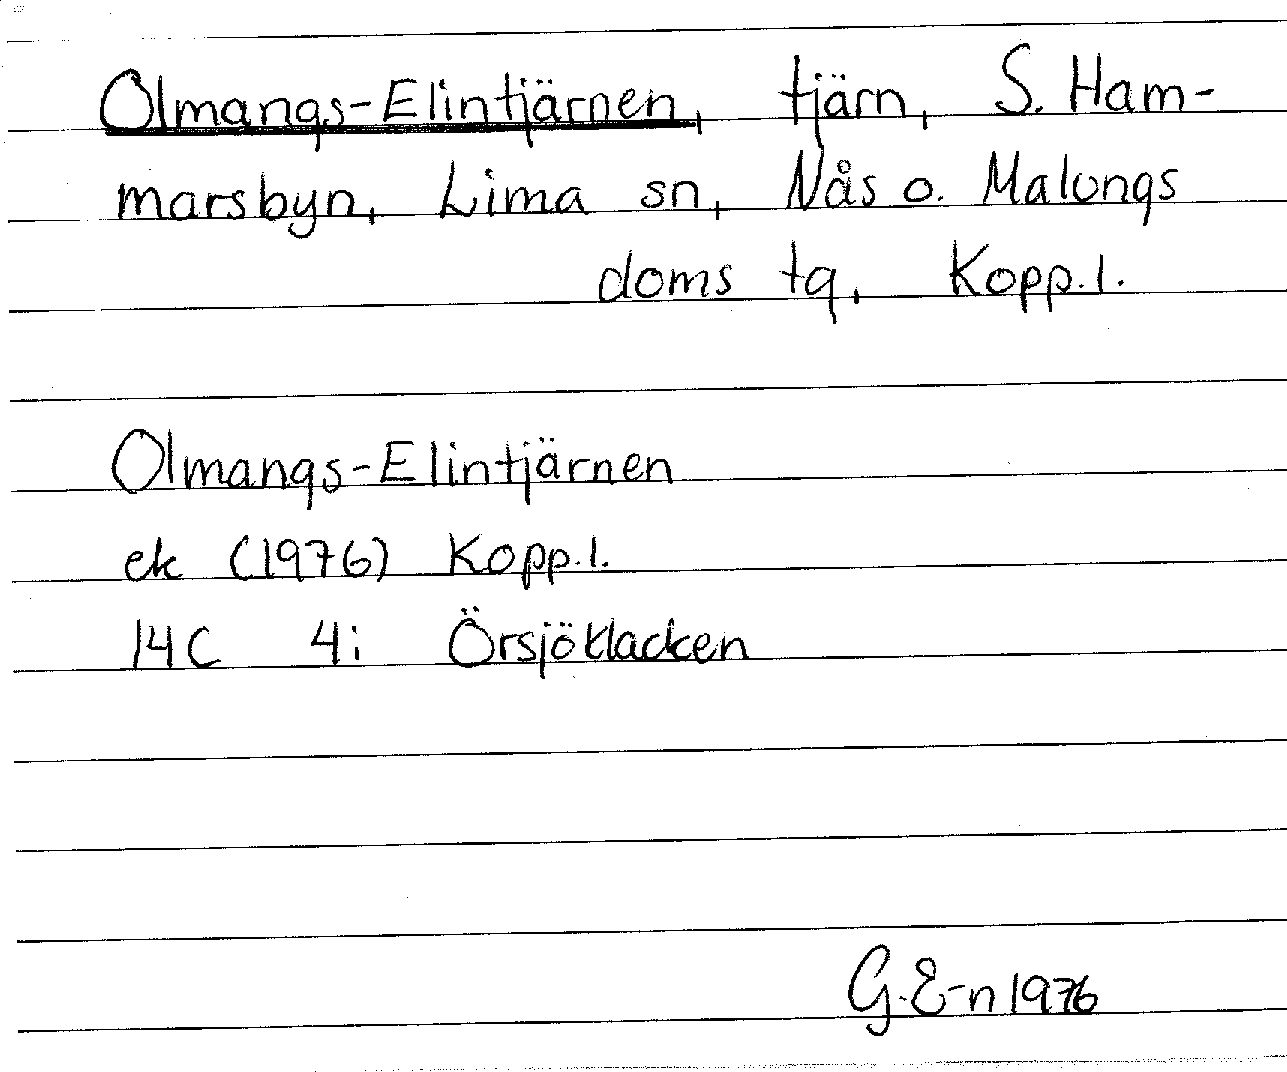 Olmangs-Elintjärnen, tjärn, S. Ham-
marsbyn, Lima sn, Nås o. Malungs
doms tg, Kopp.l.
Olmangs-Elintjärnen
ek (1976) Kopp.l.
14C 4i Örsjöklacken
G.E-n 1976